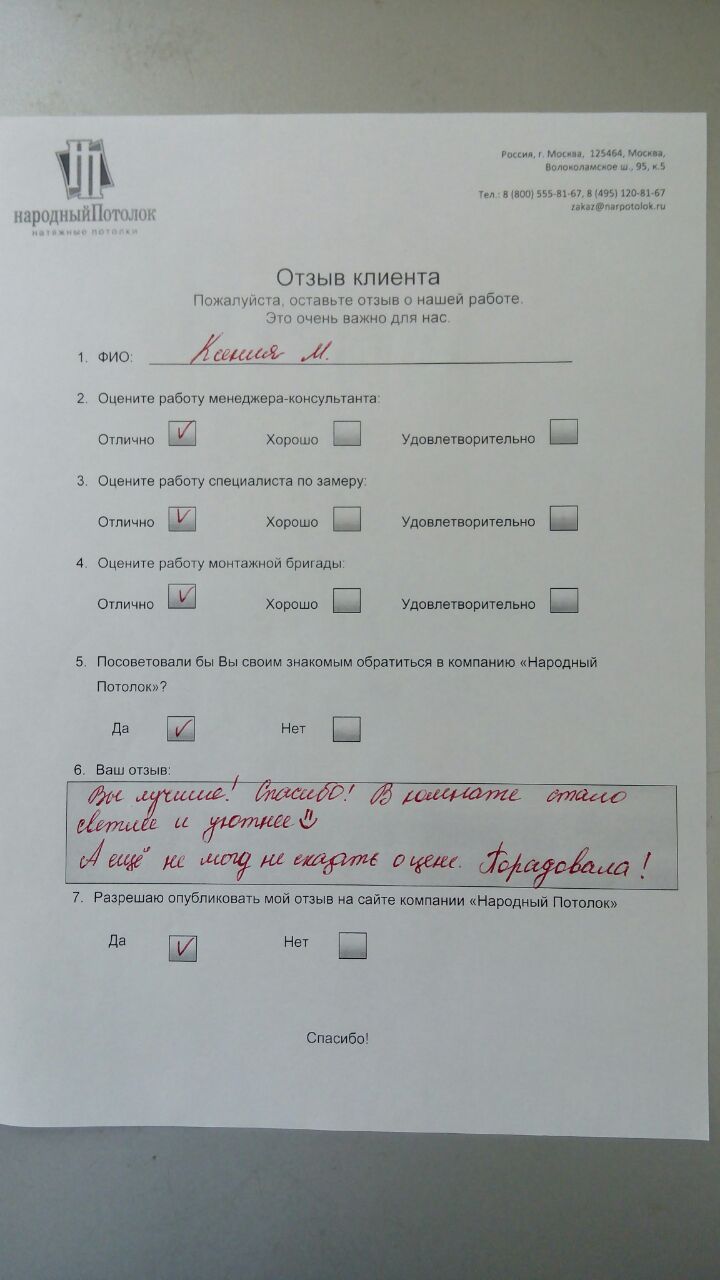 народныйПотолок
натяжные потолки
Россия, г. Москва, 125464, Москва,
Волоколамское ш., 95, к.5
Тел.: 8 (800) 555-81-67, 8 (495) 120-81-67
zakaz@narpotolok.ru
Отзыв клиента
Пожалуйста, оставьте отзыв о нашей работе.
Это очень важно для нас.
1. ФИО: Ксения М.
2. Оцените работу менеджера-консультанта:
Отлично ✓ Хорошо Удовлетворительно
3. Оцените работу специалиста по замеру:
Отлично ✓ Хорошо Удовлетворительно
4. Оцените работу монтажной бригады:
Отлично ✓ Хорошо Удовлетворительно
5. Посоветовали бы Вы своим знакомым обратиться в компанию «Народный
Потолок»?
Да ✓ Нет
6. Ваш отзыв:
Вы лучшие! Спасибо! В комнате стало
светлее и уютнее
А ещё не могу не сказать о цене. Порадовала!
7. Разрешаю опубликовать мой отзыв на сайте компании «Народный Потолок»
Да ✓ Нет
Спасибо!